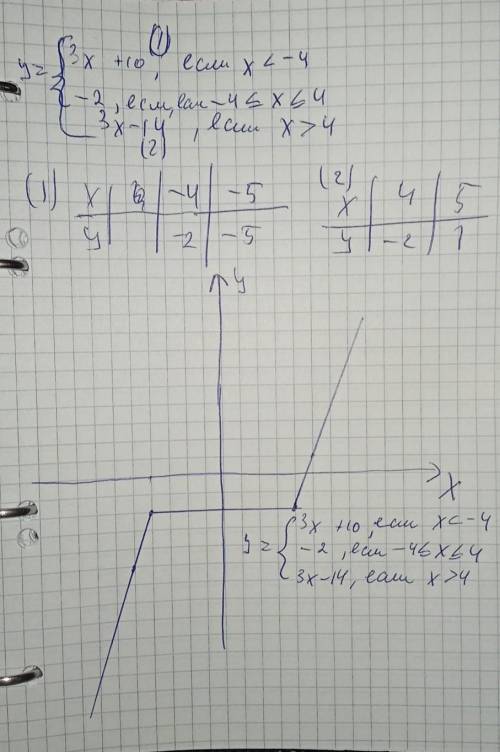 (1)
y = { 3x +10, если x < -4
-2, если, если -4 ≤ x ≤ 4
3x-14, если x > 4
(2)
(1) x | | -4 | -5
y | | -2 | -5
(2) x | 4 | 5
y | -2 | 1
y
x
y = { 3x +10, если x < -4
-2, если -4 ≤ x ≤ 4
3x-14, если x > 4